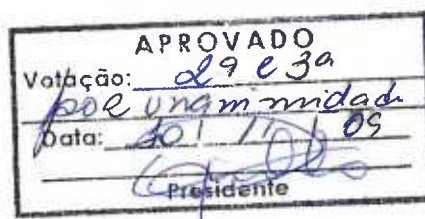 APROVADO
Votação: 2ª e 3ª
por unanimidade
Data: 30 / 11 / 09
Presidente